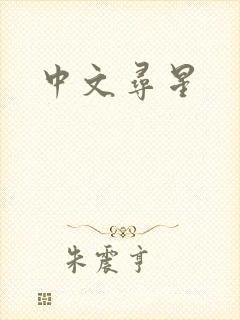 中文尋星
朱震亨